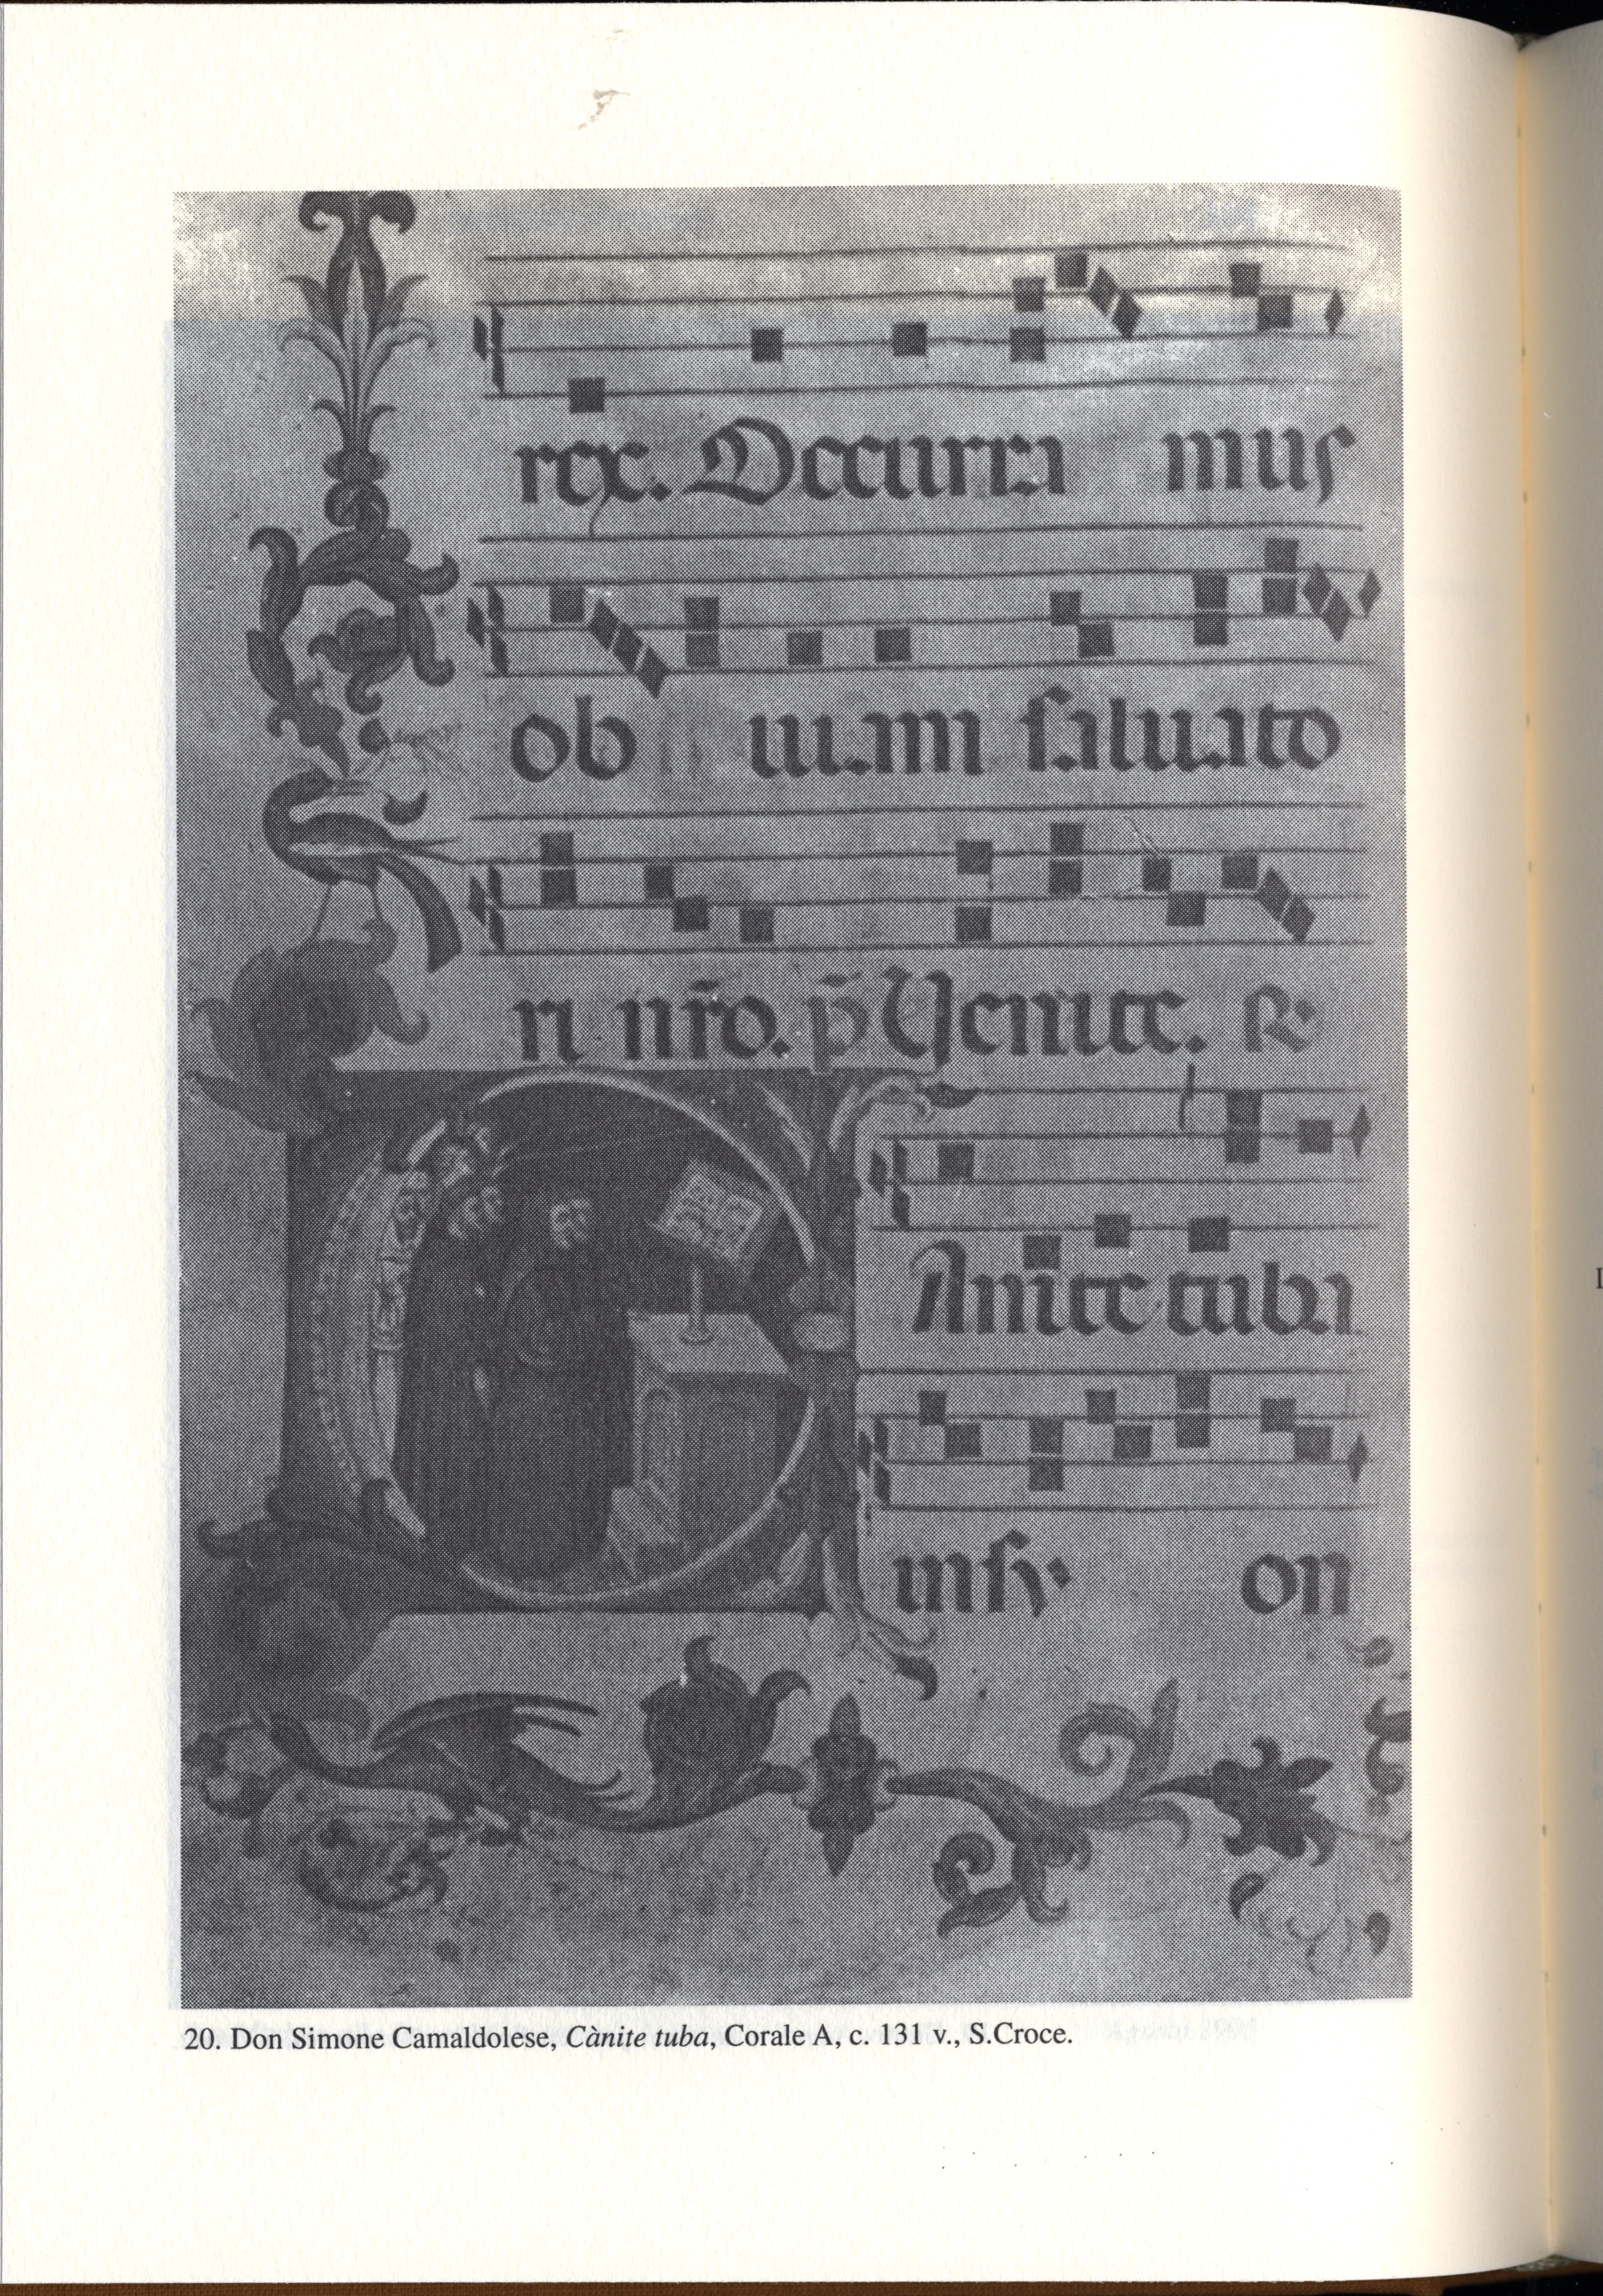 rex. Occurra mus
ob uiam saluato
ri nr̄o. p̄ Venite. R
Anite tuba
in sy on
20. Don Simone Camaldolese, Cànite tuba, Corale A, c. 131 v., S.Croce.